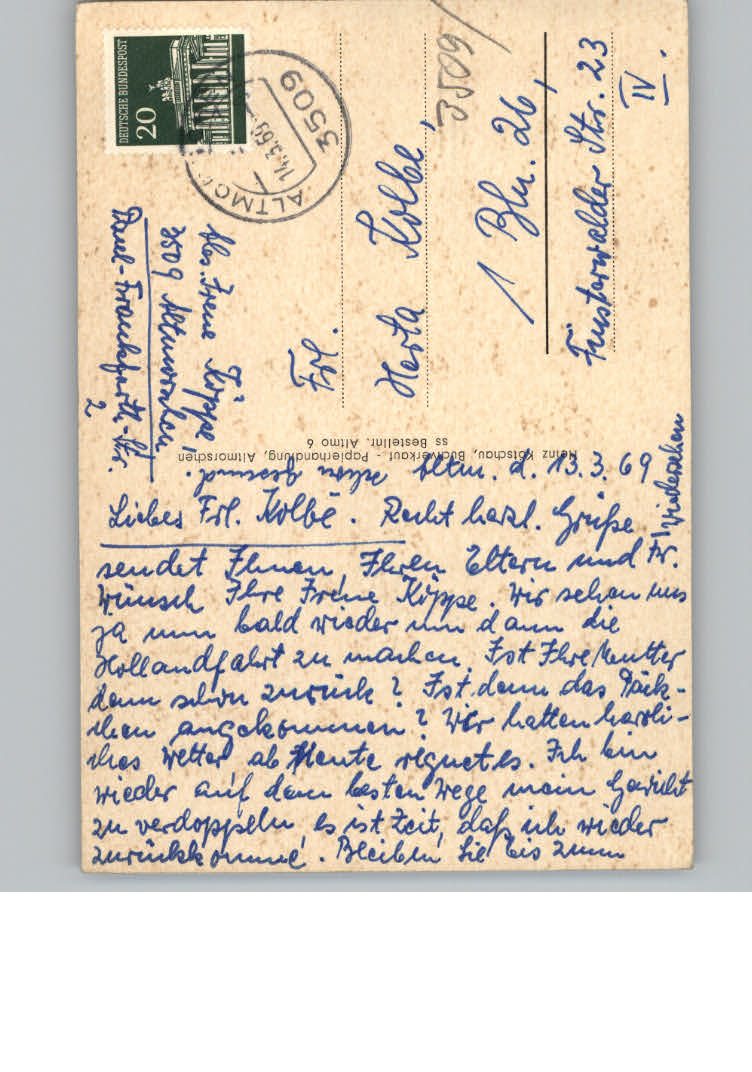 DEUTSCHE BUNDESPOST
20
ALTMO
3509
14.3.69
3509
Frl.
Herta Kolbe,
1 Bln. 26,
Finsterwalder Str. 23
IV.
Abs. Irene Köppe,
3509 Altmorschen
Paul-Frankfurth-Str.
2
Heinz Kötschau, Buchverkauf - Papierhandlung, Altmorschen
ss Bestellnr. Altmo 6
Altm. d. 13.3.69
Liebes Frl. Kolbe. Recht herzl. Grüße
sendet Ihnen Ihren Eltern und Fr.
Wünsch Ihre Irene Köppe. Wir sehen uns
ja nun bald wieder um dann die
Hollandfahrt zu machen. Ist Ihre Mutter
denn schon zurück? Ist denn das Päck-
chen angekommen? Wir hatten herrli-
ches Wetter ab Heute regnet es. Ich bin
wieder auf dem besten Wege mein Gewicht
zu verdoppeln, es ist Zeit, daß ich wieder
zurückkomme. Bleiben Sie bis zum
Wiedersehen
schön gesund.